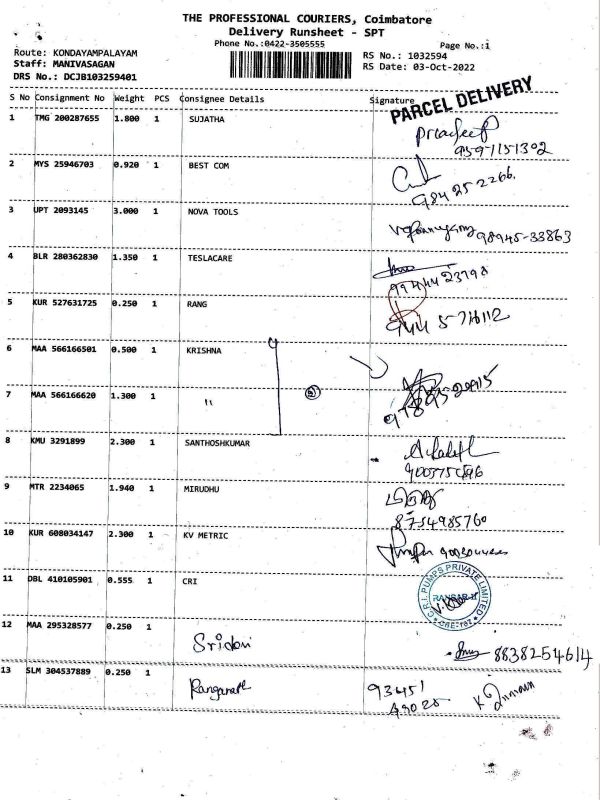 THE PROFESSIONAL COURIERS, Coimbatore
Delivery Runsheet - SPT
Phone No.:0422-3505555 Page No.:1
Route: KONDAYAMPALAYAM RS No.: 1032594
Staff: MANIVASAGAN RS Date: 03-Oct-2022
DRS No.: DCJB103259401
PARCEL DELIVERY
S No Consignment No Weight PCS Consignee Details Signature
1 TMG 200287655 1.800 1 SUJATHA
9597151302
2 MYS 25946703 0.920 1 BEST COM
984252266.
3 UPT 2093145 3.000 1 NOVA TOOLS
98945-33863
4 BLR 280362830 1.350 1 TESLACARE
5 KUR 527631725 0.250 1 RANG
6 MAA 566166501 0.500 1 KRISHNA
7 MAA 566166620 1.300 1 "
8 KMU 3291899 2.300 1 SANTHOSHKUMAR
9 MTR 2234065 1.940 1 MIRUDHU
8754985760
10 KUR 608034147 2.300 1 KV METRIC
11 DBL 410105901 0.555 1 CRI
C.R.I. PUMPS PRIVATE LIMITED
12 MAA 295328577 0.250 1 Sridevi
8838254614
13 SLM 304537889 0.250 1 Ranganath 93451
49025